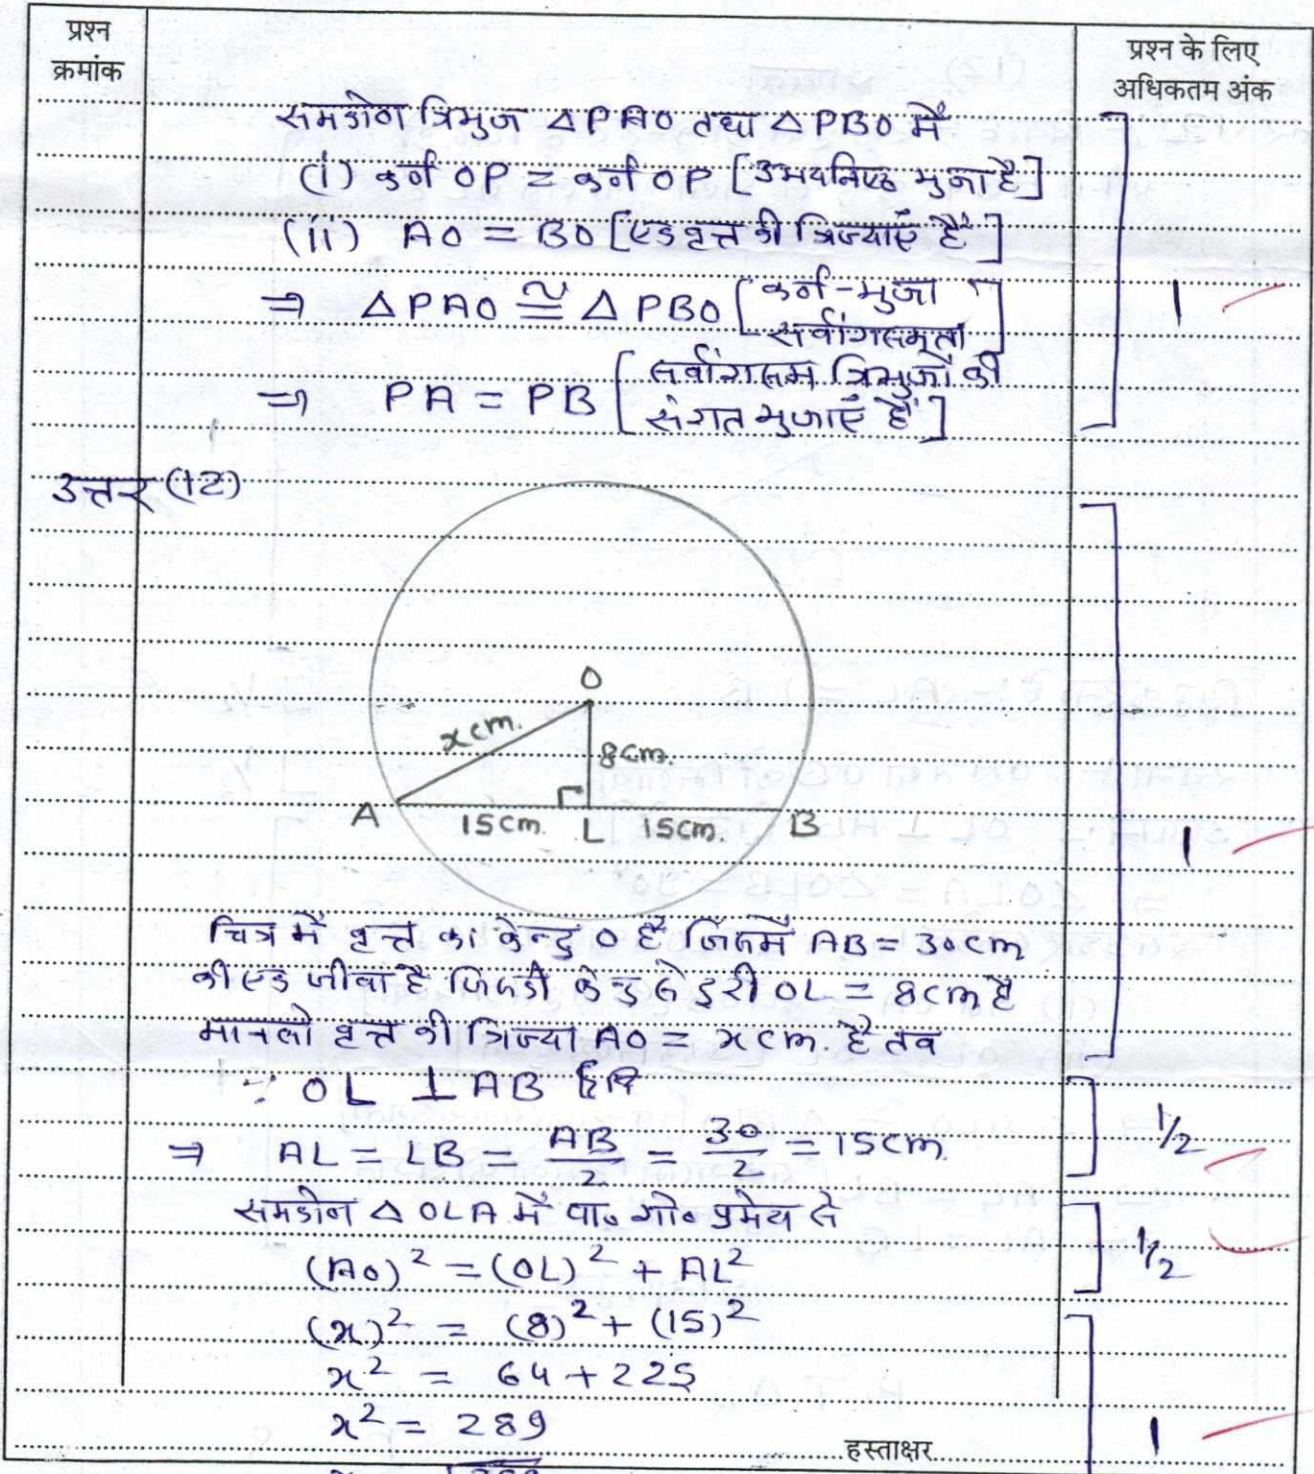 प्रश्न क्रमांक
प्रश्न के लिए अधिकतम अंक
समकोण त्रिभुज △PAO तथा △PBO में
(i) कर्ण OP = कर्ण OP [उभयनिष्ठ भुजा है]
(ii) AO = BO [एक वृत्त की त्रिज्याएं हैं]
⇒ △PAO ≅ △PBO [कर्ण-भुजा
सर्वांगसमता]
1
⇒ PA = PB [सर्वांगसम त्रिभुजों की
संगत भुजाएं हैं]
उत्तर (12)
O
x cm.
8cm.
A 15cm. L 15cm. B
1
चित्र में वृत्त का केन्द्र O है जिसमें AB = 30cm
की एक जीवा है जिसकी केन्द्र से दूरी OL = 8cm है
मानलो वृत्त की त्रिज्या AO = x cm. है तब
∵ OL ⊥ AB
⇒ AL = LB = AB/2 = 30/2 = 15cm.
1/2
समकोण △OLA में पा० गो० प्रमेय से
(AO)² = (OL)² + AL²
1/2
(x)² = (8)² + (15)²
x² = 64 + 225
x² = 289
1
हस्ताक्षर